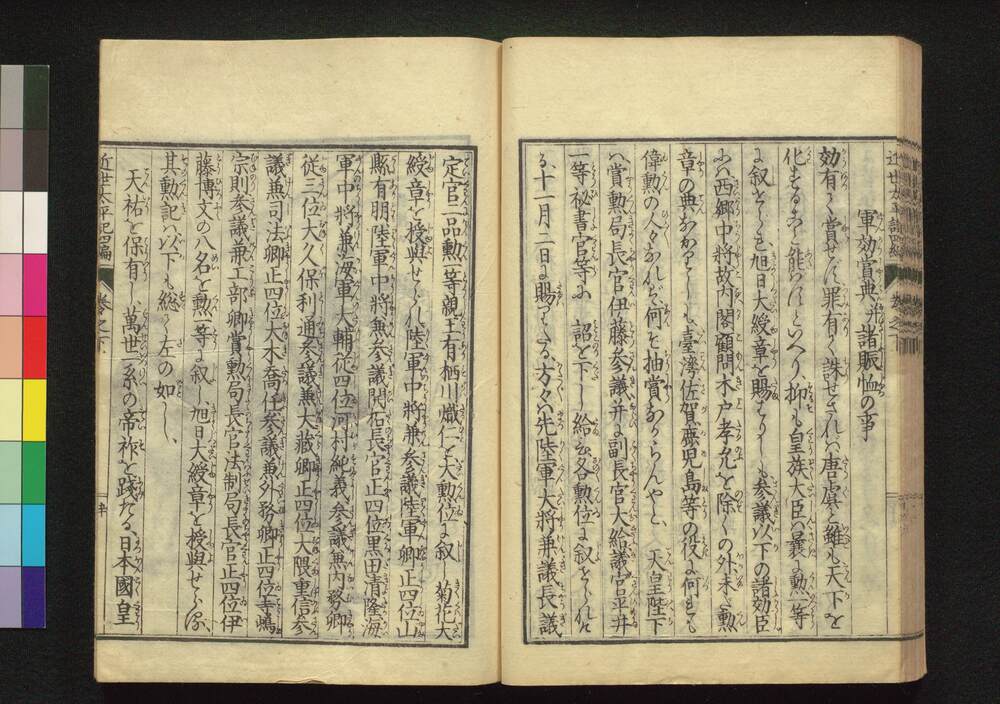 軍効賞典并諸賑恤の事
効有て賞せず罪有て誅せざれバ唐虞と雖も天下を
化することと能はずといへり抑も皇族大臣ハ曩に勲一等
に叙せられ旭日大綬章を賜はりしも参議以下の諸効臣
ハ西郷中将故内閣顧問木戸孝允を除くの外未だ勲
章の典あらざりしも臺湾佐賀鹿児島等の役に何れも
偉勲の人々なれバ何を抽賞あらざらんやと 天皇陛下
ハ賞勲局長官伊藤参議并に副長官大給議官平井
一等秘書官等に 詔を下し給ひ各勲位に叙せられ
る十一月二日に賜はりたる方々ハ先陸軍大将兼議長議
定官二品勲一等親王有栖川熾仁を大勲位に叙し菊花大
綬章を授與せられ陸軍中将兼参議陸軍卿正四位山
縣有朋陸軍中将兼参議開拓長官正四位黒田清隆海
軍中将兼海軍大輔従四位河村純義参議兼内務卿
従三位大久保利通参議兼大蔵卿正四位大隈重信参
議兼司法卿正四位大木喬任参議兼外務卿正四位寺嶋
宗則参議兼工部卿賞勲局長官法制局長官正四位伊
藤博文の八名を勲一等に叙し旭日大綬章を授與せらる
其勲記ハ以下も総て左の如し
天祐を保有し萬世一系の帝祚を践たる日本國皇
近世太平記四編 巻之下